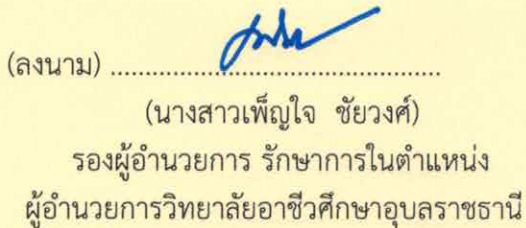 (ลงนาม) ............................................
(นางสาวเพ็ญใจ ชัยวงศ์)
รองผู้อำนวยการ รักษาการในตำแหน่ง
ผู้อำนวยการวิทยาลัยอาชีวศึกษาอุบลราชธานี